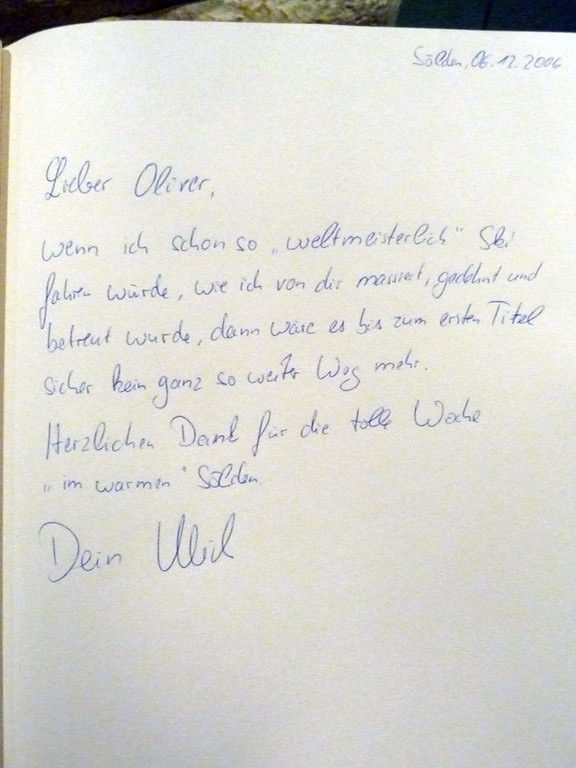 Sölden, 06.12.2006
Lieber Oliver,
wenn ich schon so „weltmeisterlich“ Ski
fahren würde, wie ich von dir massiert, gedehnt und
betreut wurde, dann wäre es bis zum ersten Titel
sicher kein ganz so weiter Weg mehr.
Herzlichen Dank für die tolle Woche
„im warmen“ Sölden
Dein